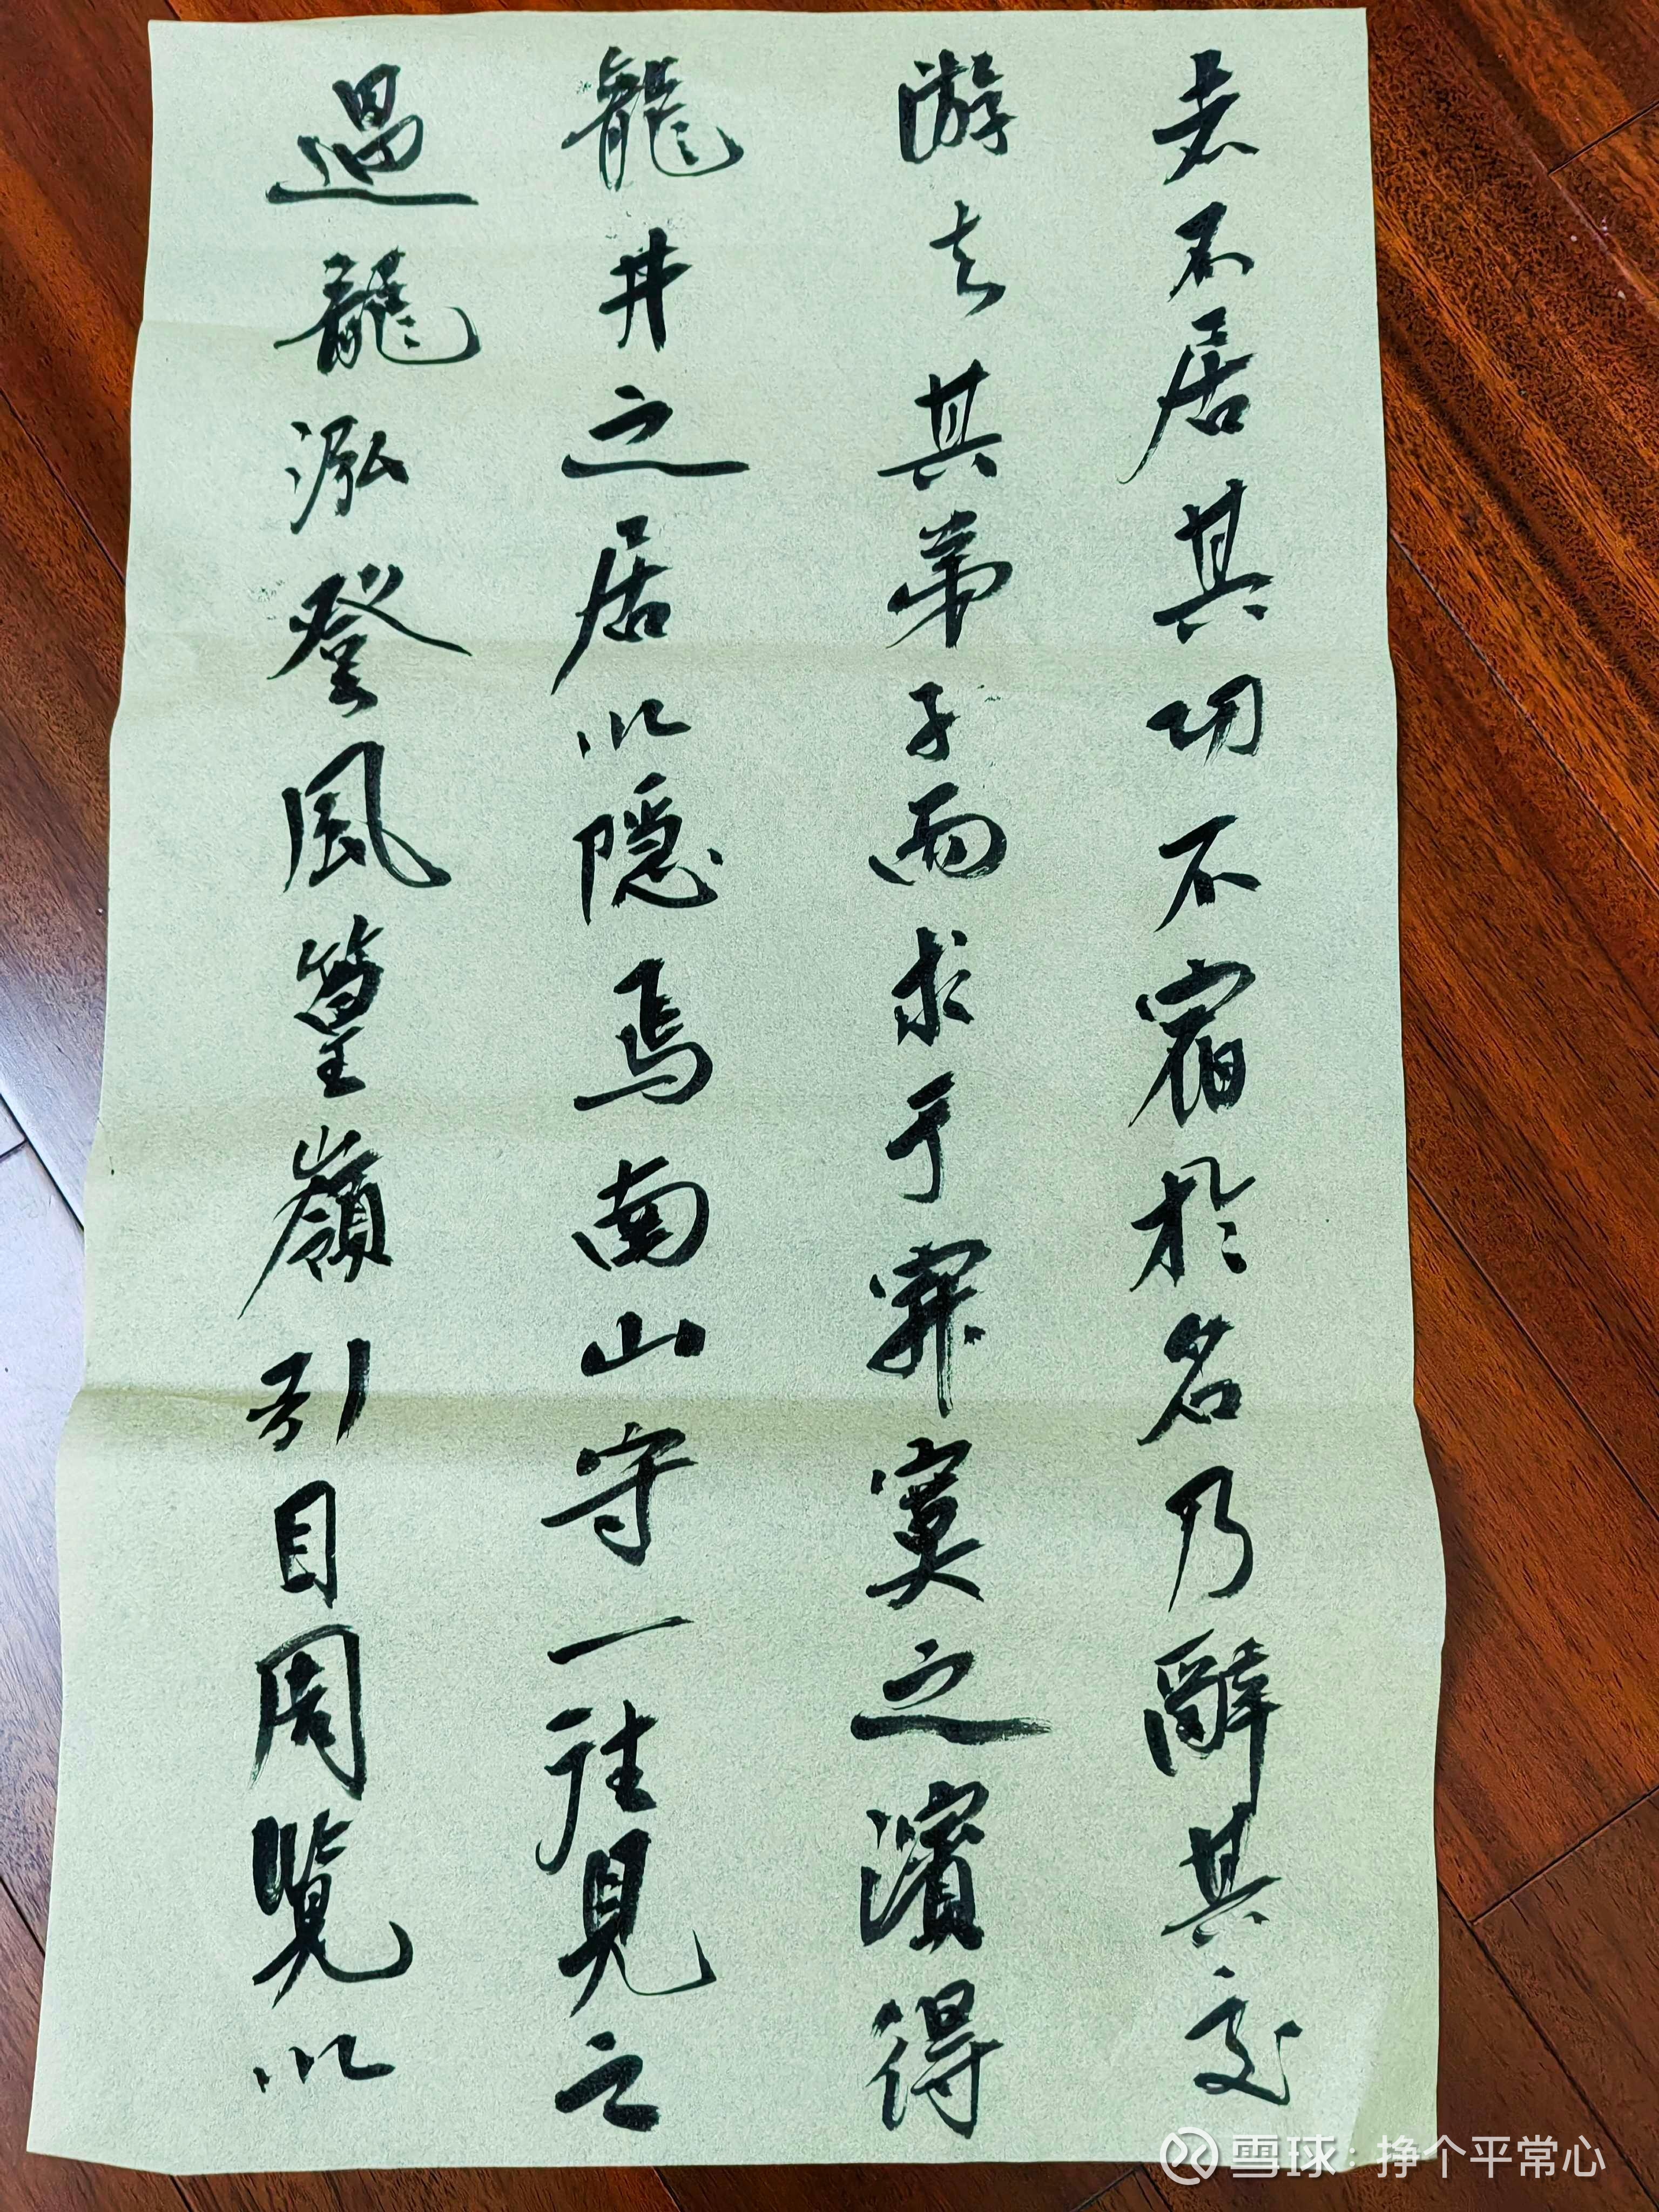 者不居其功不宿於名乃辭其交
游去其弟子而求于寂寞之濱得
龍井之居以隱焉南山守一往見之
過龍泓登風篁嶺引目周覽以
雪球：挣个平常心